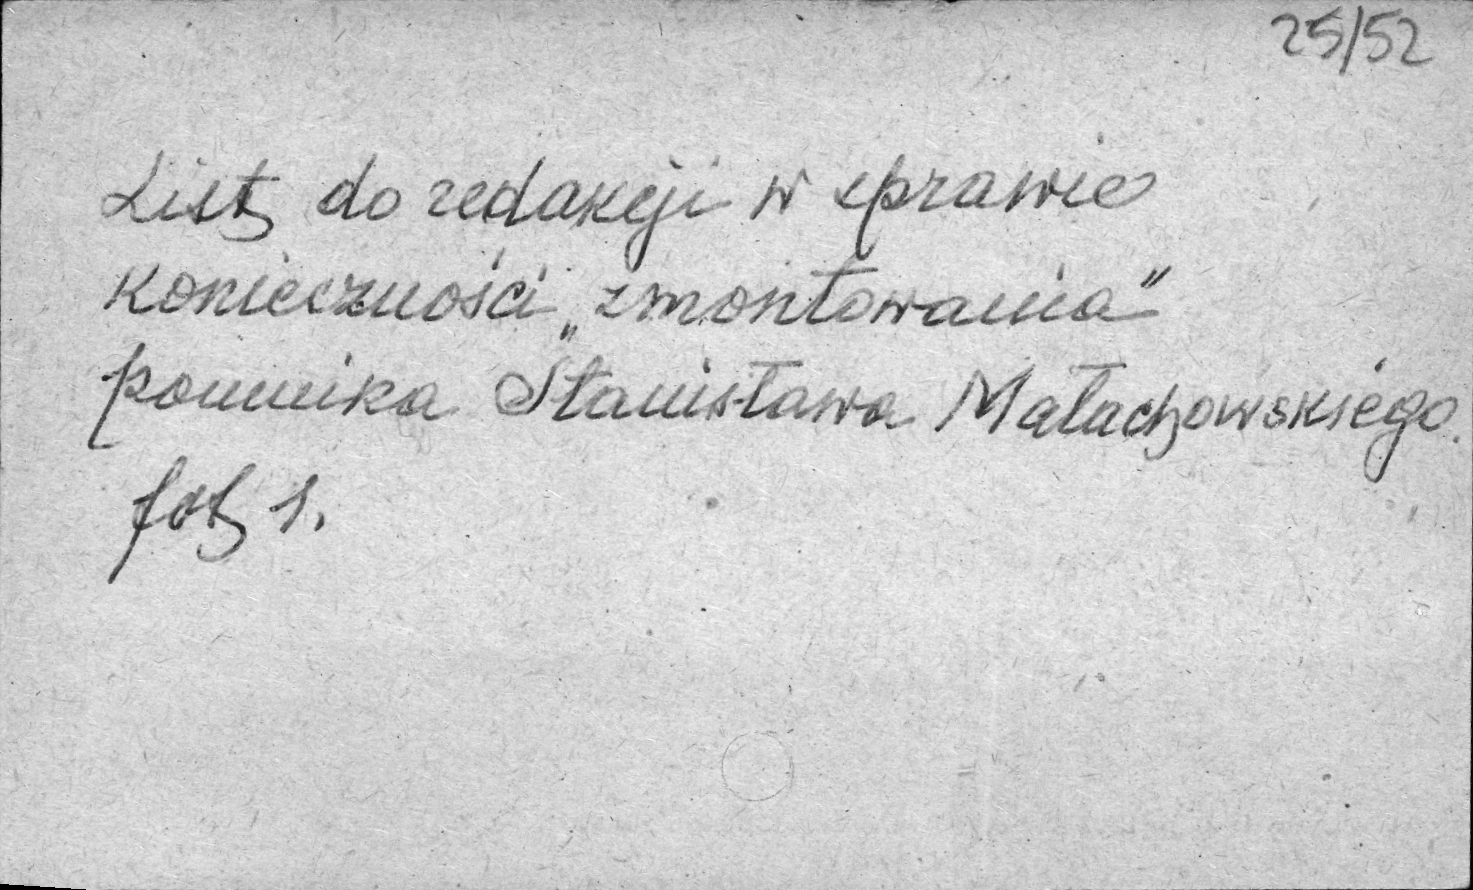 25/52
List do redakcji w sprawie
konieczności „zmontowania"
pomnika Stanisława Małachowskiego.
fot 1.